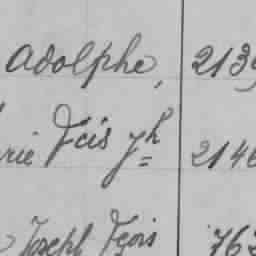 Adolphe, 213
rie Fcis Jh 214
Joseph Fçois 76